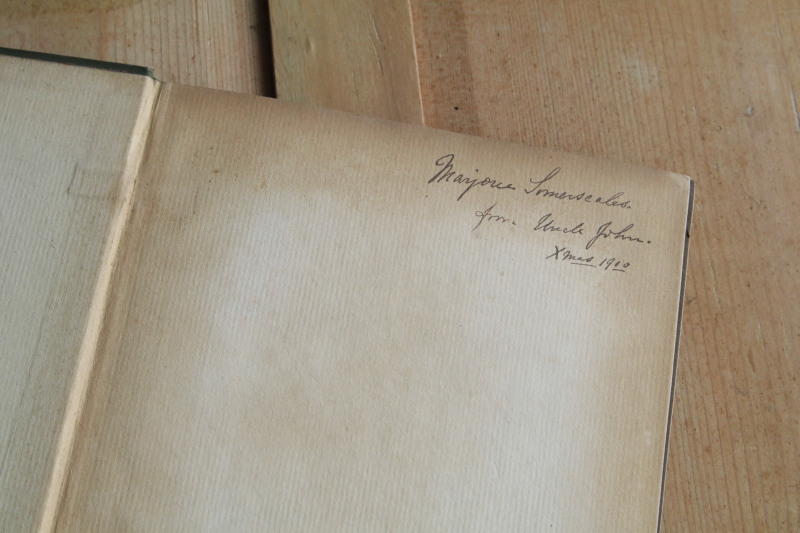 Marjorie Somerscales.
from Uncle John.
Xmas 1900